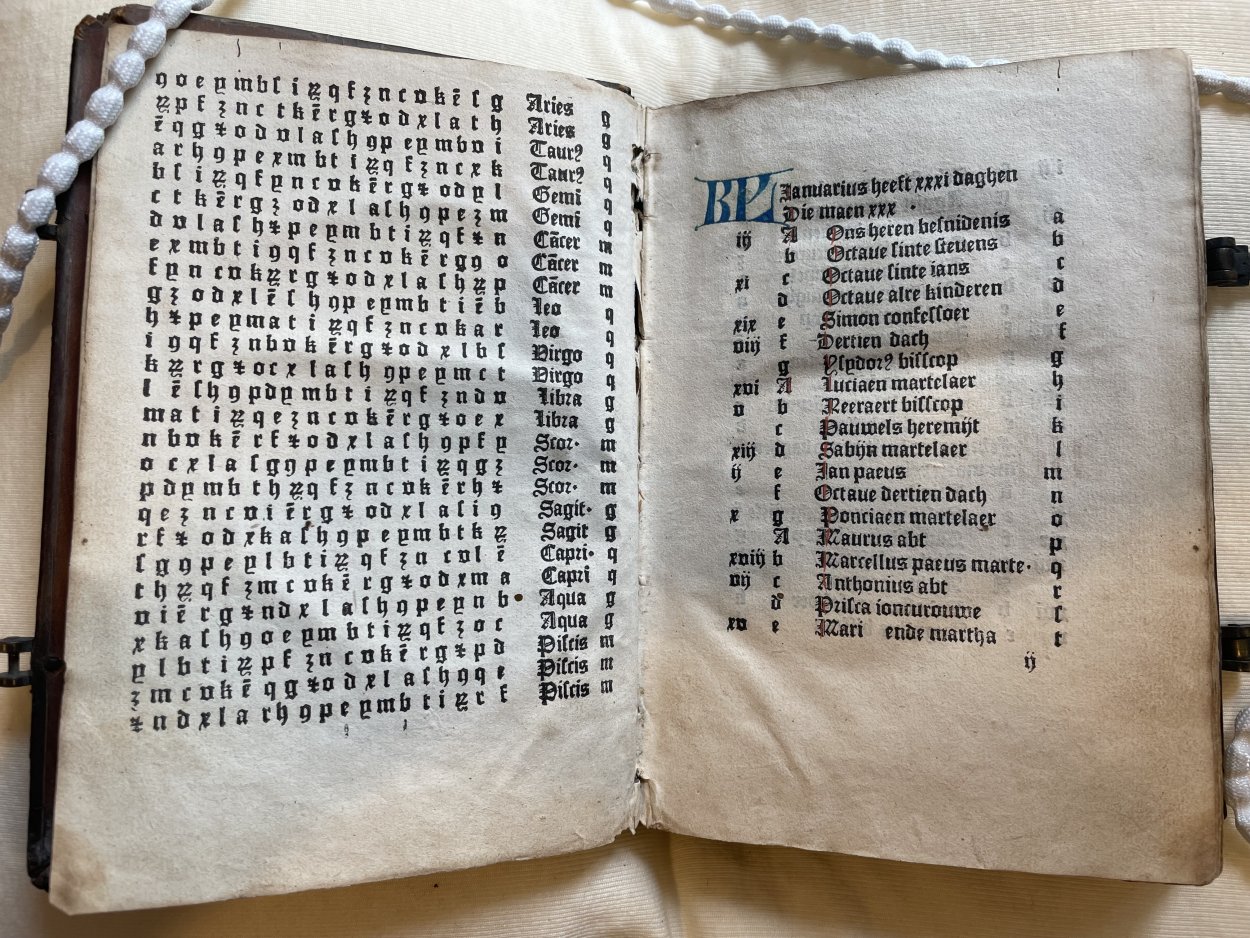 9 o e y m b ſ i ꝝ q f ʒ n c v k ē ſ g Aries g
ꝝ p f ʒ n c t k ē r g ⁊ o d x l a t h Aries g
ē q g ⁊ o d v l a ſ h 9 p e y m b v i Taur9 q
a r h 9 p e x m b t i ꝝ q f ʒ n c x k Taur9 q
b ſ i ꝝ q f y n c v k ē r g ⁊ o d y l Gemi q
c t k ē r g ʒ o d x l a ſ h 9 p e ʒ m Gemi q
d v l a ſ h ⁊ p e y m b t i ꝝ q f ⁊ n Cācer m
e x m b t i 9 q f ʒ n c v k ē r g 9 o Cācer m
f y n c v k ꝝ r g ⁊ o d x l a ſ h ꝝ p Cācer m
g ʒ o d x l ē ſ h 9 p e y m b t i ē b Leo q
h ⁊ p e y m a t i ꝝ q f ʒ n c v k a r Leo q
i 9 q f ʒ n b v k ē r g ⁊ o d x l b ſ Virgo q
k ꝝ r g ⁊ o c x l a ſ h 9 p e y m c t Virgo q
l ē ſ h 9 p d y m b t i ꝝ q f ʒ n d v Libra g
m a t i ꝝ q e ʒ n c v k ē r g ⁊ o e x Libra g
n b v k ē r f ⁊ o d x l a ſ h 9 p f y Scor· m
o c x l a ſ g 9 p e y m b t i ꝝ q g ʒ Scor· m
p d y m b t h ꝝ q f ʒ n c v k ē r h ⁊ Scor· m
q e ʒ n c v i ē r g ⁊ o d x l a ſ i 9 Sagit· g
r f ⁊ o d x k a ſ h 9 p e y m b t k ꝝ Sagit g
ſ g 9 p e y l b t i ꝝ q f ʒ n c v l ē Capri· q
t h ꝝ q f ʒ m c v k ē r g ⁊ o d x m a Capri q
v i ē r g ⁊ n d x l a ſ h 9 p e y n b Aqua g
x k a ſ h 9 o e y m b t i ꝝ q f ʒ o c Aqua g
y l b t i ꝝ p f ʒ n c v k ē r g ⁊ p d Piſcis m
ʒ m c v k ē q g ⁊ o d x l a ſ h 9 q e Piſcis m
⁊ n d x l a r h 9 p e y m b t i ꝝ r f Piſcis m
Ianuarius heeft xxxi daghen
Die maen xxx ·
iij A Ons heren beſnidenis a
b Octaue ſinte ſteuens b
xi c Octaue ſinte ians c
d Octaue alre kinderen d
xix e Simon confeſſoer e
viij f Dertien dach f
g Yſydor9 biſſcop g
xvi A Luciaen martelaer h
v b Reeraert biſſcop i
c Pauwels heremijt k
xiij d Sabijn martelaer l
ij e Ian paeus m
f Octaue dertien dach n
x g Ponciaen martelaer o
A Maurus abt p
xviij b Marcellus paeus marte· q
vij c Anthonius abt r
d Priſca ioncurouwe ſ
xv e Mari ende martha t
ij